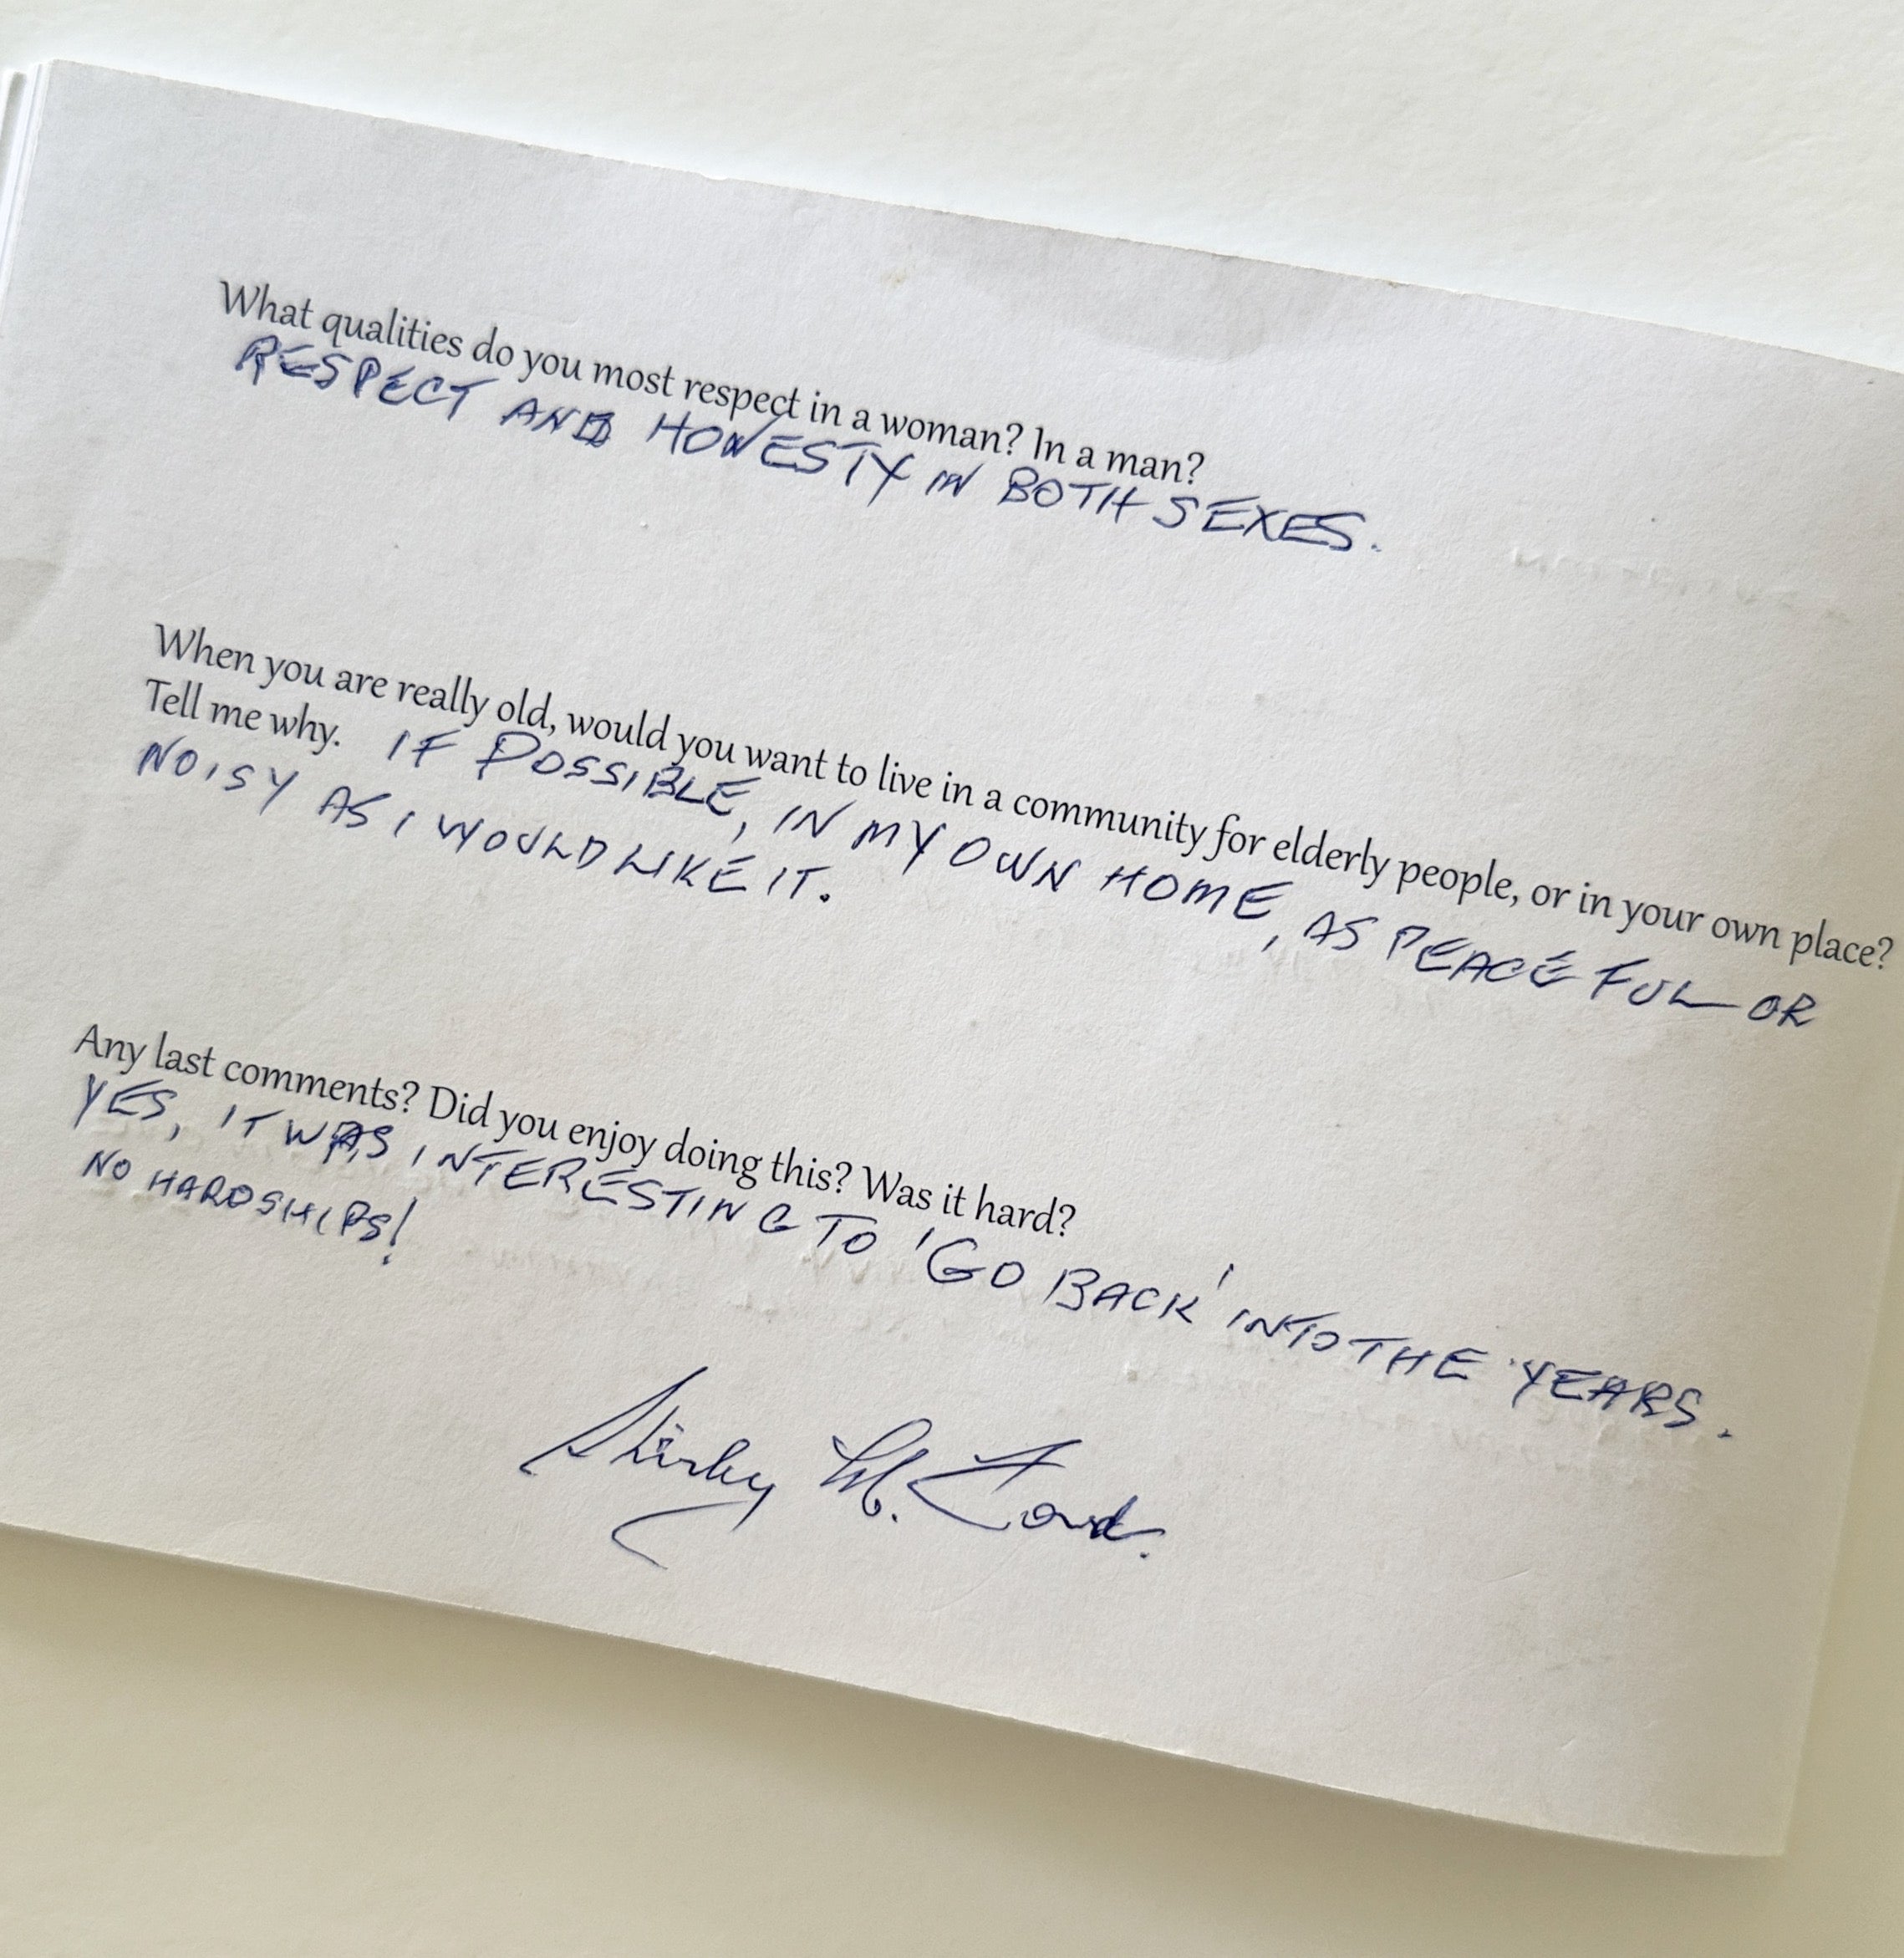 What qualities do you most respect in a woman? In a man?
RESPECT AND HONESTY IN BOTH SEXES.
When you are really old, would you want to live in a community for elderly people, or in your own place?
Tell me why. IF POSSIBLE, IN MY OWN HOME, AS PEACEFUL OR
NOISY AS I WOULD LIKE IT.
Any last comments? Did you enjoy doing this? Was it hard?
YES, IT WAS INTERESTING TO 'GO BACK' INTO THE YEARS.
NO HARDSHIPS!
Shirley M.